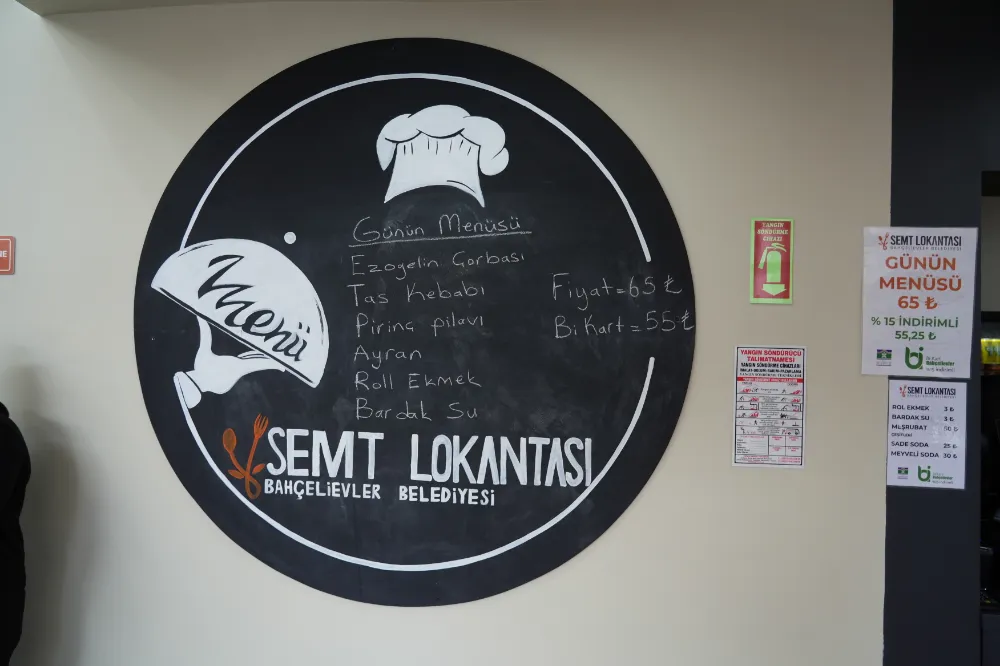 Menü
Günün Menüsü
Ezogelin Çorbası
Tas Kebabı
Pirinç pilavı
Ayran
Roll Ekmek
Bardak Su
Fiyat=65 ₺
Bi Kart=55 ₺
SEMT LOKANTASI
BAHÇELİEVLER BELEDİYESİ
YANGIN
SÖNDÜRME
CİHAZI
YANGIN SÖNDÜRÜCÜ
TALİMATNAMESİ
SEMT LOKANTASI
BAHÇELİEVLER BELEDİYESİ
GÜNÜN
MENÜSÜ
65 ₺
% 15 İNDİRİMLİ
55,25 ₺
bi
SEMT LOKANTASI
ROL EKMEK 3 ₺
BARDAK SU 3 ₺
MEŞRUBAT 50 ₺
ÇEŞİTLERİ
SADE SODA 25 ₺
MEYVELİ SODA 30 ₺
bi